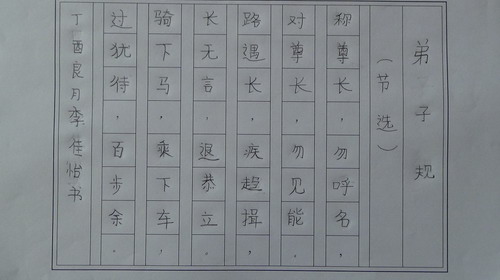 弟子规
（节选）
称尊长，勿呼名，
对尊长，勿见能。
路遇长，疾趋揖，
长无言，退恭立。
骑下马，乘下车，
过犹待，百步余。
丁酉良月李佳怡书